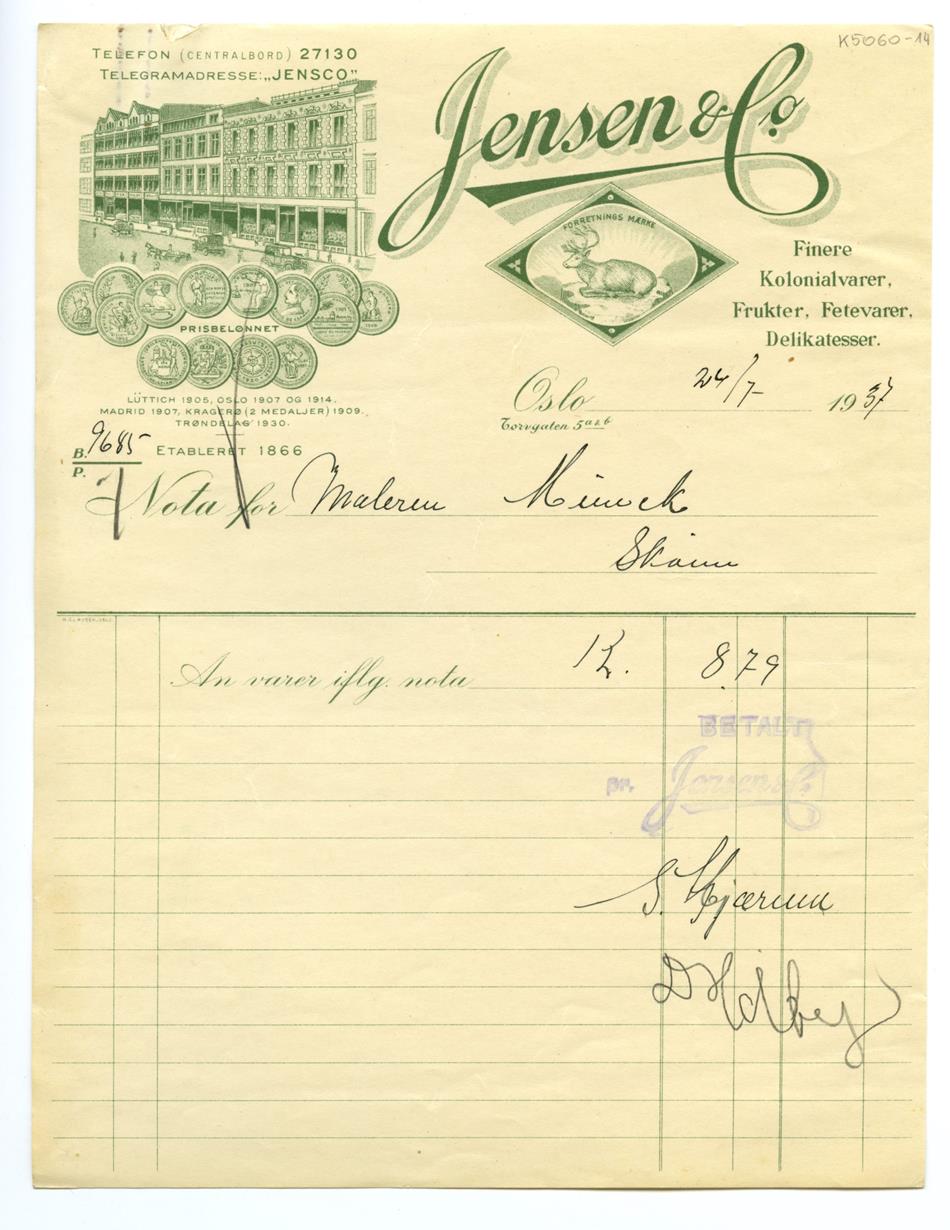 K5060-14
TELEFON (CENTRALBORD) 27130
TELEGRAMADRESSE: „JENSCO"
Jensen & Co.
FORRETNINGS MÆRKE
Finere
Kolonialvarer,
Frukter, Fetevarer,
Delikatesser.
PRISBELØNNET
LÜTTICH 1905, OSLO 1907 OG 1914.
MADRID 1907, KRAGERØ (2 MEDALJER) 1909.
TRØNDELAG 1930.
Oslo 24/7- 1937
Torvgaten 5 a & b
B. 9685
P.
ETABLERET 1866
Nota for Maleren Münck
Skøien
An varer iflg. nota 12. 8.79
BETALT
pr. Jensen & Co.
S. Hjærum